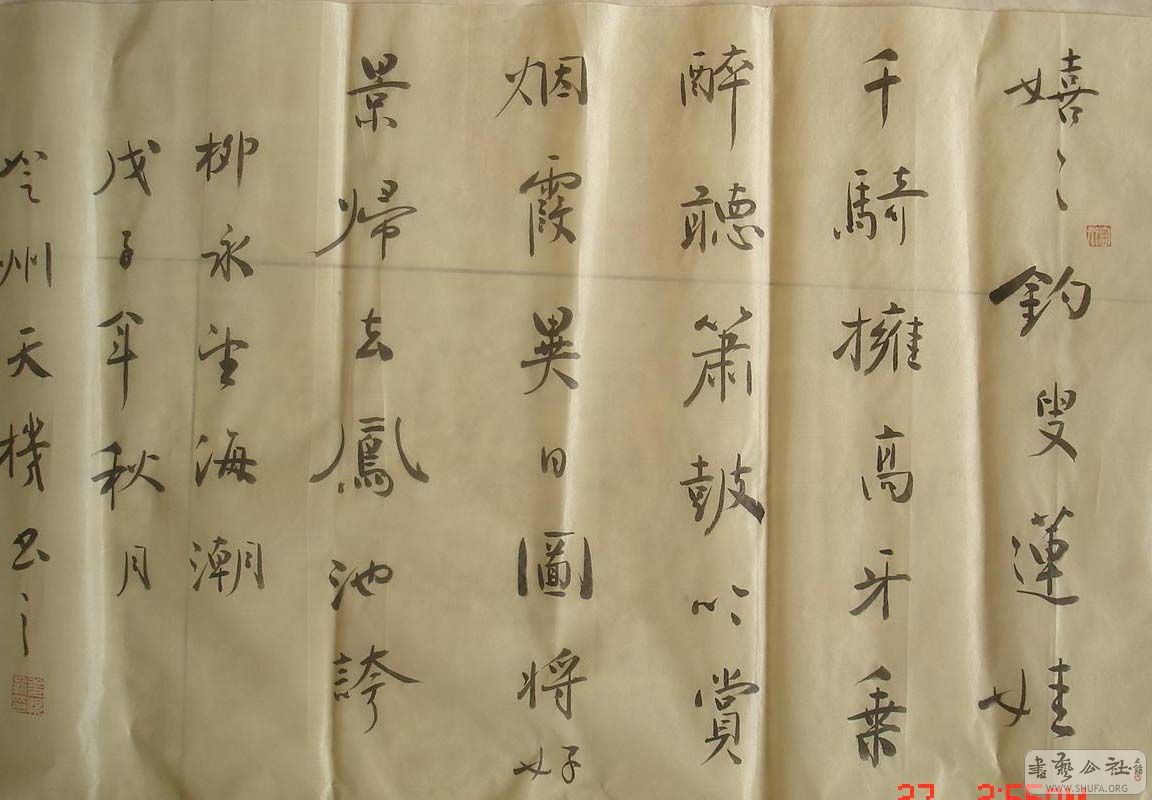 嬉〻釣叟蓮娃
千騎擁高牙乘
醉聽簫鼓吟賞
烟霞異日圖將好
景歸去鳳池誇
柳永望海潮
戊子年秋月
州天機書之
書藝公社
WWW.SHUFA.ORG